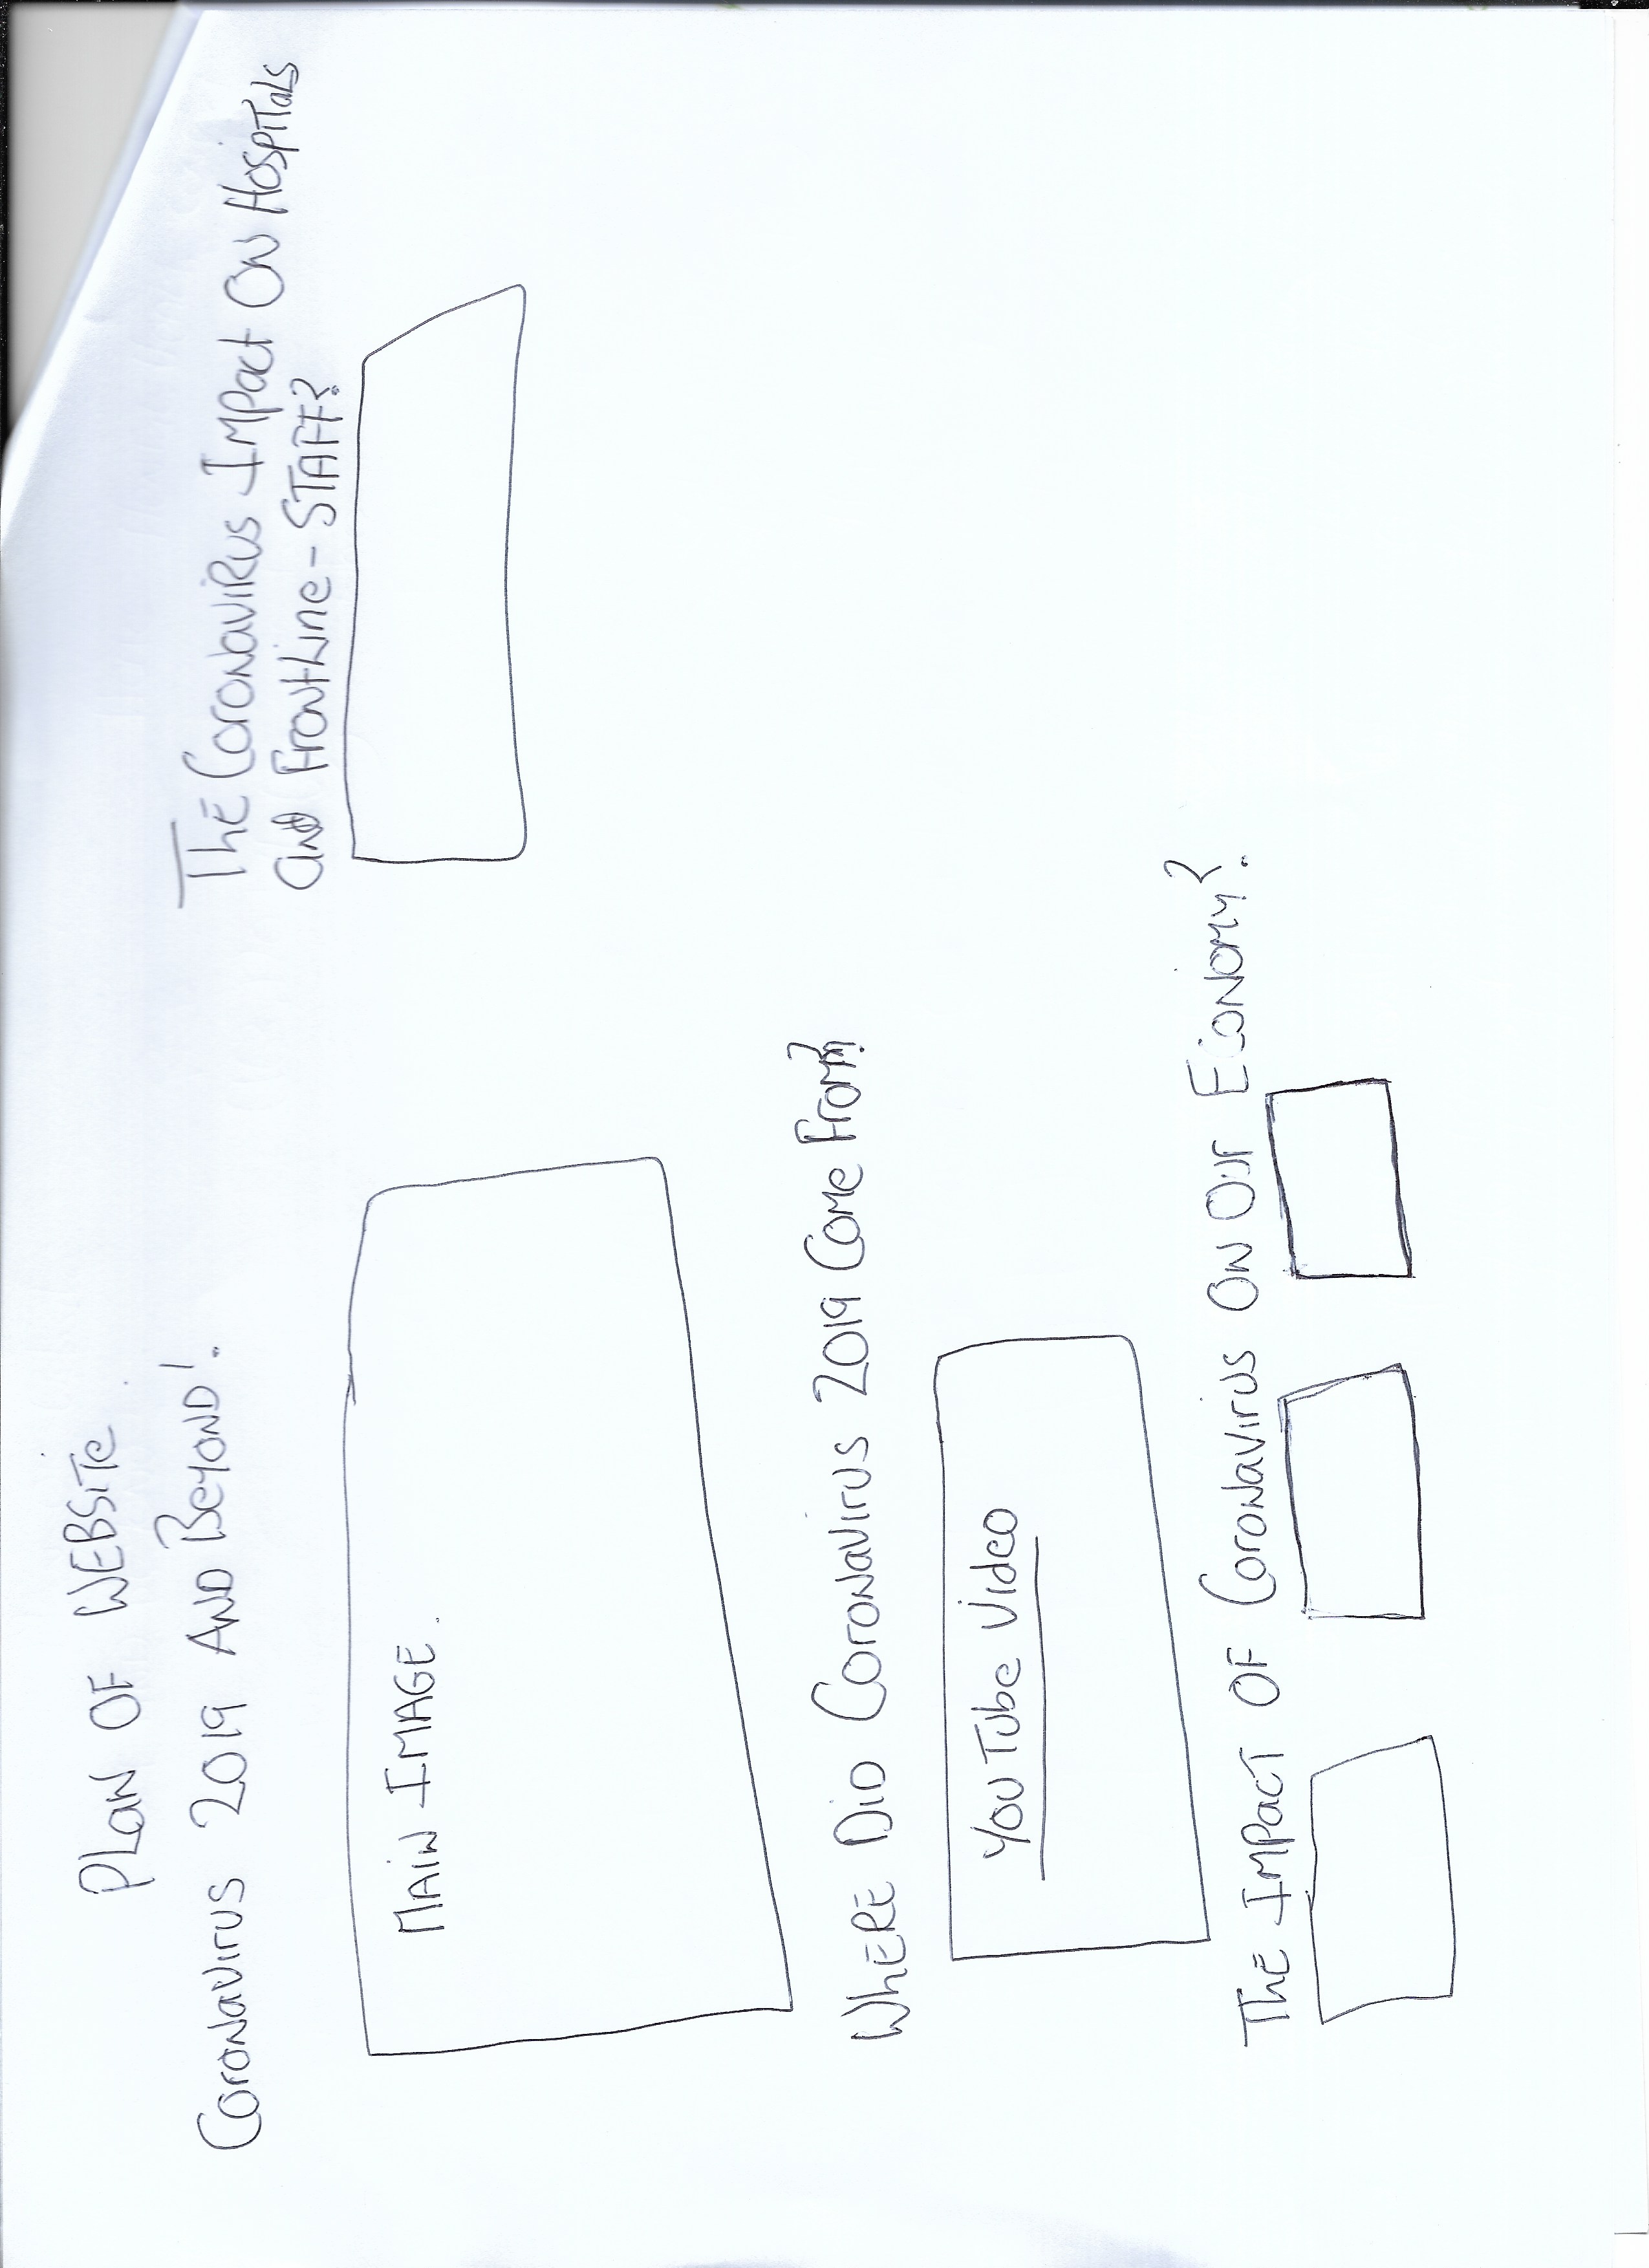 PLAN OF WEBSITE
CORONAVIRUS 2019 AND BEYOND!
MAIN IMAGE.
WHERE DID CORONAVIRUS 2019 COME FROM?
YOUTUBE VIDEO
THE IMPACT OF CORONAVIRUS ON OUR ECONOMY?
THE CORONAVIRUS IMPACT ON HOSPITALS
AND FRONTLINE-STAFF?